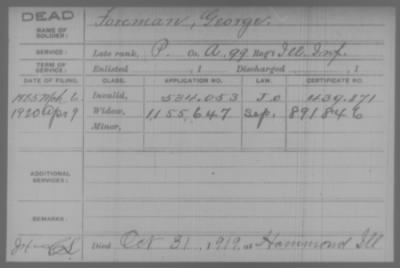 DEAD
NAME OF SOLDIER: Foreman, George.
SERVICE: Late rank, P. Co. A, 99 Reg't Ill. Inf.
TERM OF SERVICE: Enlisted , 1 Discharged , 1
DATE OF FILING. CLASS. APPLICATION NO. LAW. CERTIFICATE NO.
1885 Mch 6. Invalid, 534.053 439.871
1920 Apr 9 Widow, 1155,647 Sep. 891846
Minor,
ADDITIONAL SERVICES:
REMARKS:
Died Oct 31, 1919, at Hammond Ill